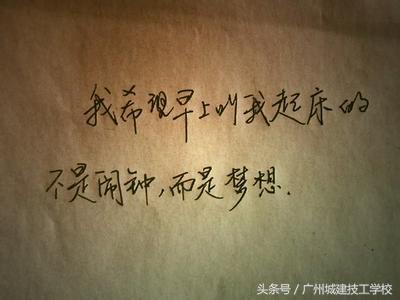 我希望早上叫我起床的
不是闹钟,而是梦想.
头条号/广州城建技工学校